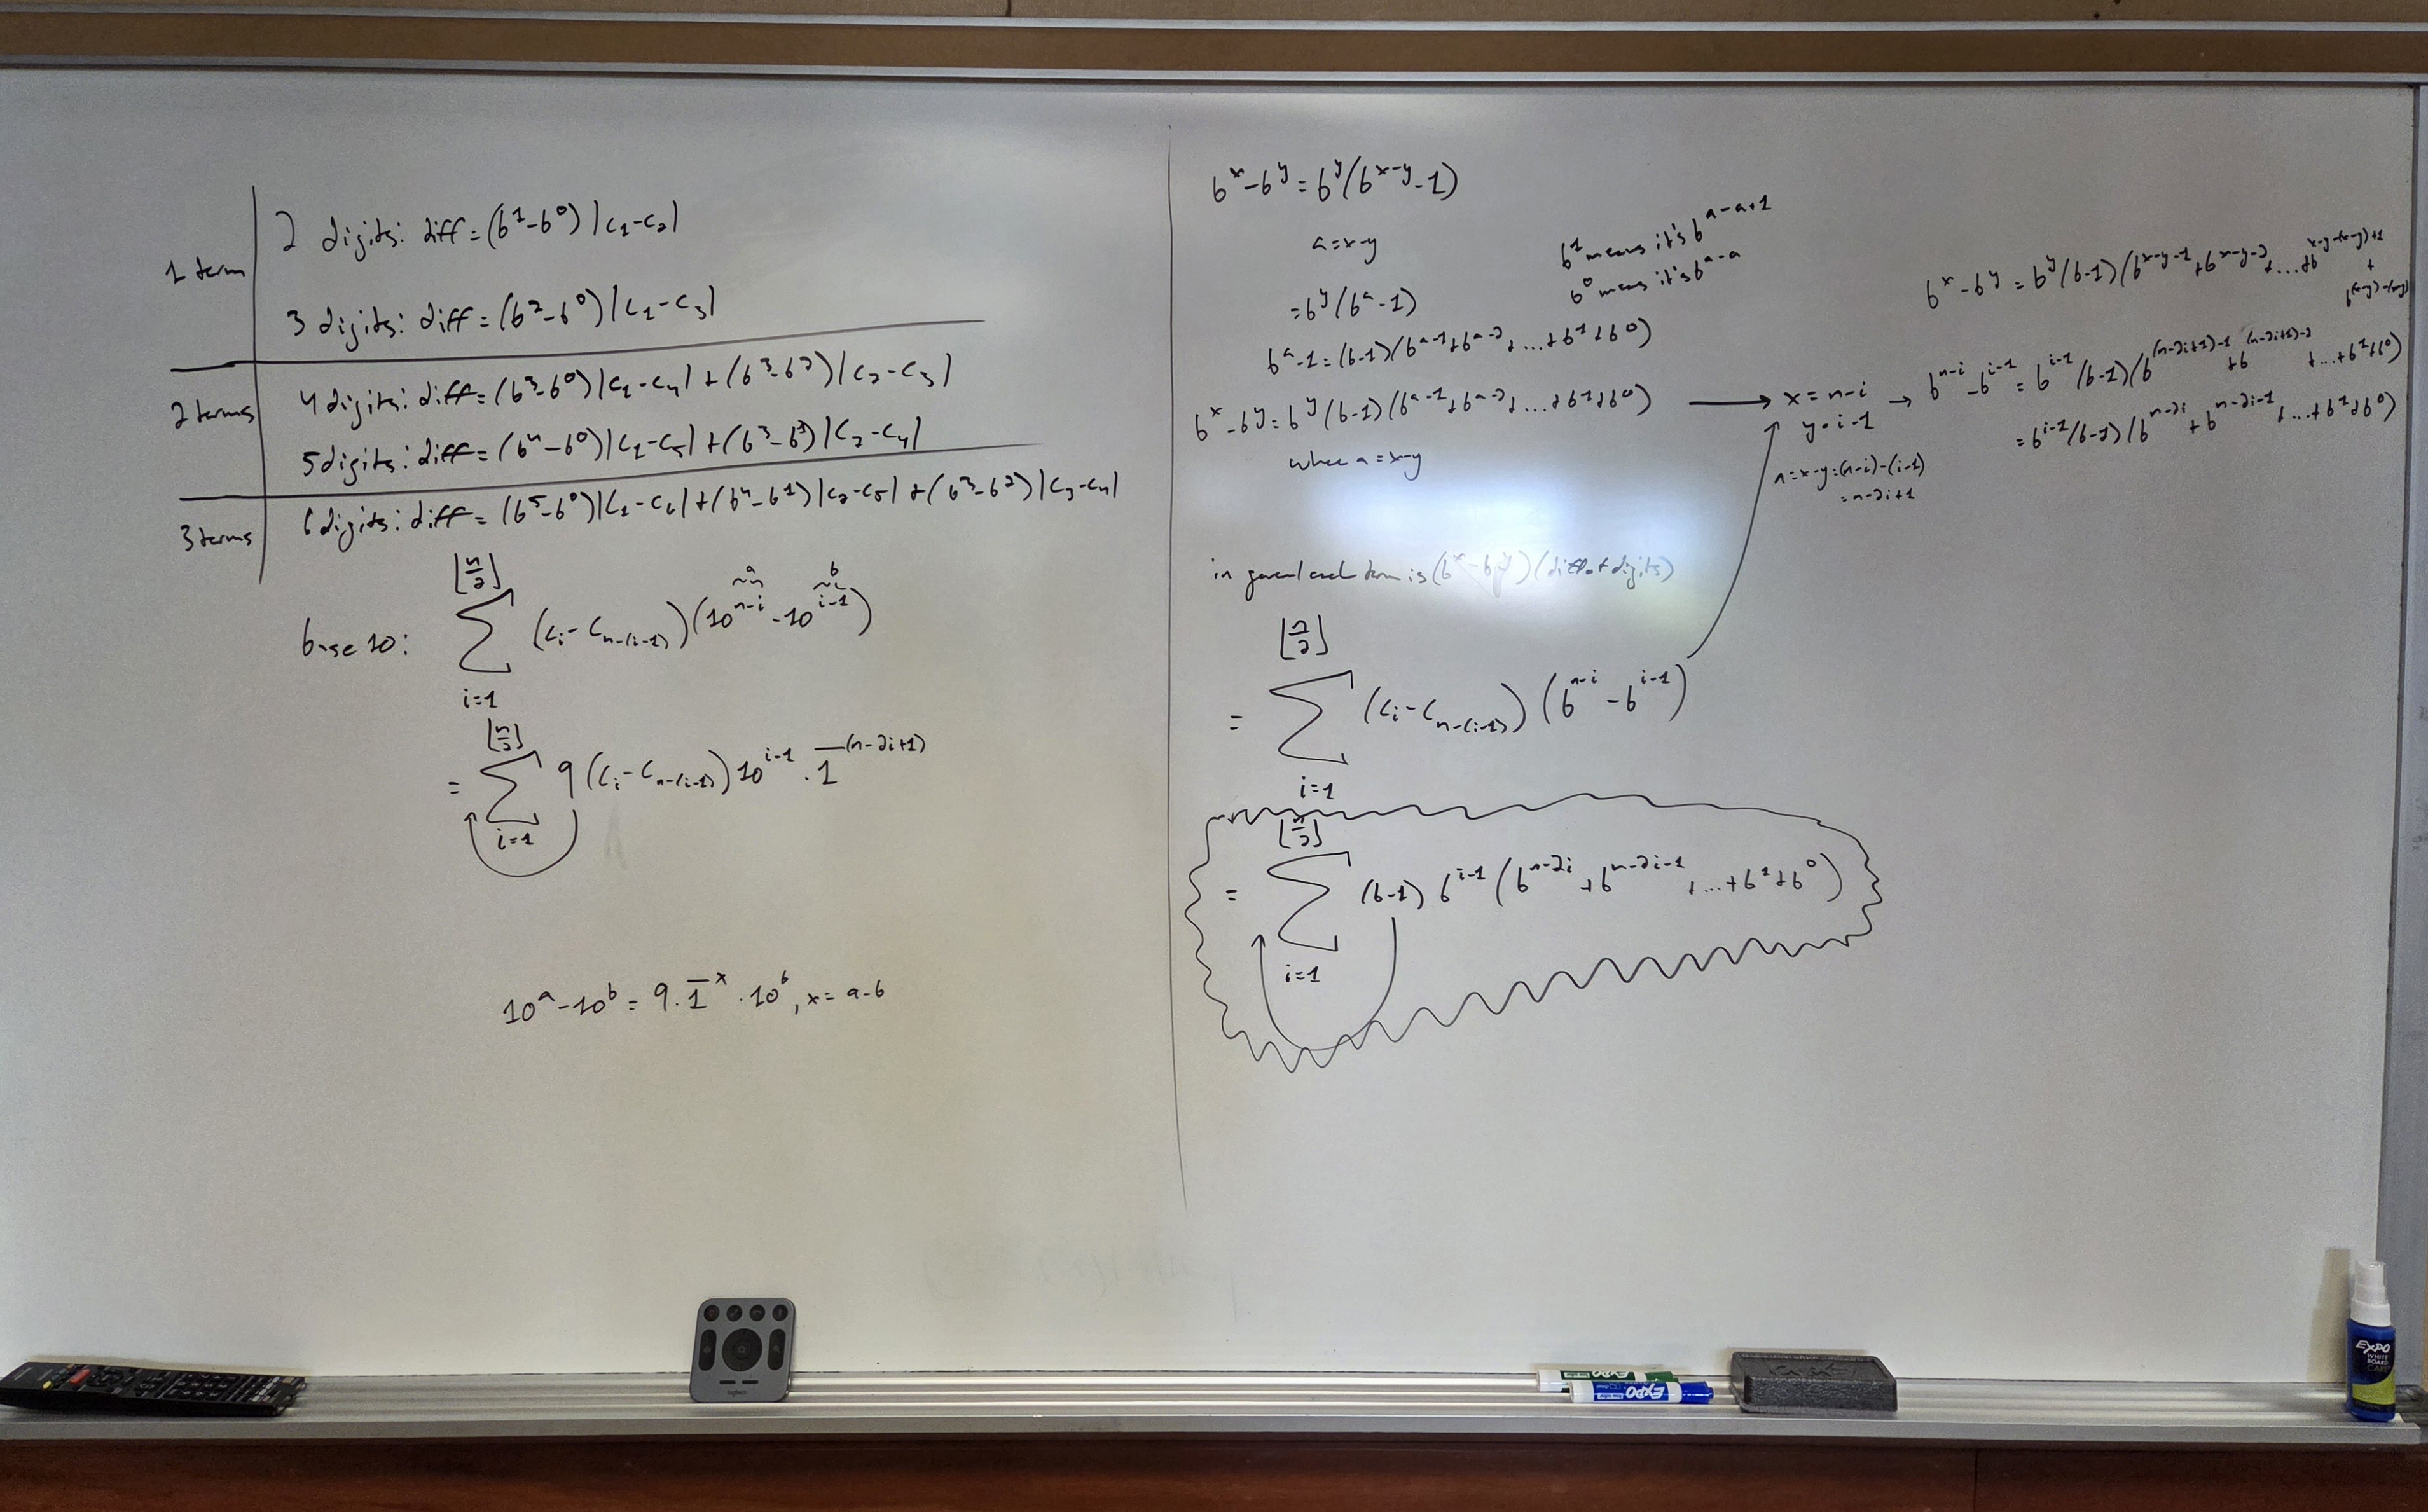 1 term
2 digits: diff = (b¹-b⁰)|c₁-c₂|
3 digits: diff = (b²-b⁰)|c₁-c₃|
2 terms
4 digits: diff = (b³-b⁰)|c₁-c₄| + (b³-b²)|c₂-c₃|
5 digits: diff = (b⁴-b⁰)|c₁-c₅| + (b³-b¹)|c₂-c₄|
3 terms
6 digits: diff = (b⁵-b⁰)|c₁-c₆| + (b⁴-b¹)|c₂-c₅| + (b³-b²)|c₃-c₄|
base 10: ∑_{i=1}^{⌊n/2⌋} (c_i - c_{n-(i-1)})(10^{n-i} - 10^{i-1})
a b
= ∑_{i=1}^{⌊n/2⌋} 9(c_i - c_{n-(i-1)})10^{i-1} · 1̅^{(n-2i+1)}
10^a - 10^b = 9 · 1̅^x · 10^b, x = a-b
b^x - b^y = b^y(b^{x-y} - 1)
a = x-y
= b^y(b^a - 1)
b¹ means it's b^{a-a+1}
b⁰ means it's b^{a-a}
b^a - 1 = (b-1)(b^{a-1} + b^{a-2} + ... + b¹ + b⁰)
b^x - b^y = b^y(b-1)(b^{a-1} + b^{a-2} + ... + b¹ + b⁰)
where a = x-y
x = n-i
y = i-1
a = x-y = (n-i)-(i-1)
= n-2i+1
b^x - b^y = b^y(b-1)(b^{x-y-1} + b^{x-y-2} + ... + b^{x-y-(x-y)+1} + b^{(x-y)-(x-y)}
b^{n-i} - b^{i-1} = b^{i-1}(b-1)(b^{(n-2i+1)-1} + b^{(n-2i+1)-2} + ... + b¹ + b⁰)
= b^{i-1}(b-1)(b^{n-2i} + b^{n-2i-1} + ... + b¹ + b⁰)
in general each term is (b^x - b^y)(diff of digits)
= ∑_{i=1}^{⌊n/2⌋} (c_i - c_{n-(i-1)})(b^{n-i} - b^{i-1})
= ∑_{i=1}^{⌊n/2⌋} (b-1) b^{i-1}(b^{n-2i} + b^{n-2i-1} + ... + b¹ + b⁰)
EXPO
EXPO
EXPO
WHITE
BOARD
CARE
logitech